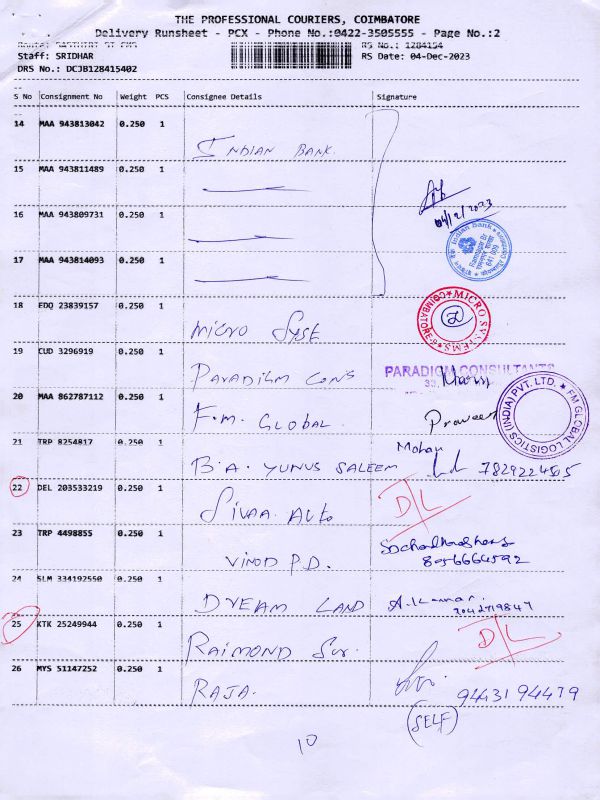 THE PROFESSIONAL COURIERS, COIMBATORE
Delivery Runsheet - PCX - Phone No.:0422-3505555 - Page No.:2
RS No.: 1284154
Staff: SRIDHAR RS Date: 04-Dec-2023
DRS No.: DCJB128415402
S No Consignment No Weight PCS Consignee Details Signature
14 MAA 943813042 0.250 1 INDIAN BANK.
15 MAA 943811489 0.250 1
04/12/2023
16 MAA 943809731 0.250 1
Indian Bank
641 009
17 MAA 943814093 0.250 1
18 EDQ 23839157 0.250 1 MICRO SYSt
MICRO SYSTEMS COIMBATORE-9
19 CUD 3296919 0.250 1 PARADIGM CONS
PARADIGM CONSULTANTS
20 MAA 862787112 0.250 1 F.M. GLOBAL. Praveen
FM GLOBAL LOGISTICS (INDIA) PVT. LTD.
21 TRP 8254817 0.250 1 B.A. YUNUS SALEEM Mohan
22 DEL 203533219 0.250 1 SIVAA. AUtO D/L
23 TRP 4498855 0.250 1 VINOD P.D.
8056664592
24 SLM 334192550 0.250 1 DREAM LAND A.Kannan.
25 KTK 25249944 0.250 1 RAIMOND D/L
26 MYS 51147252 0.250 1 RAJA. 9443194479
(SELF)
10